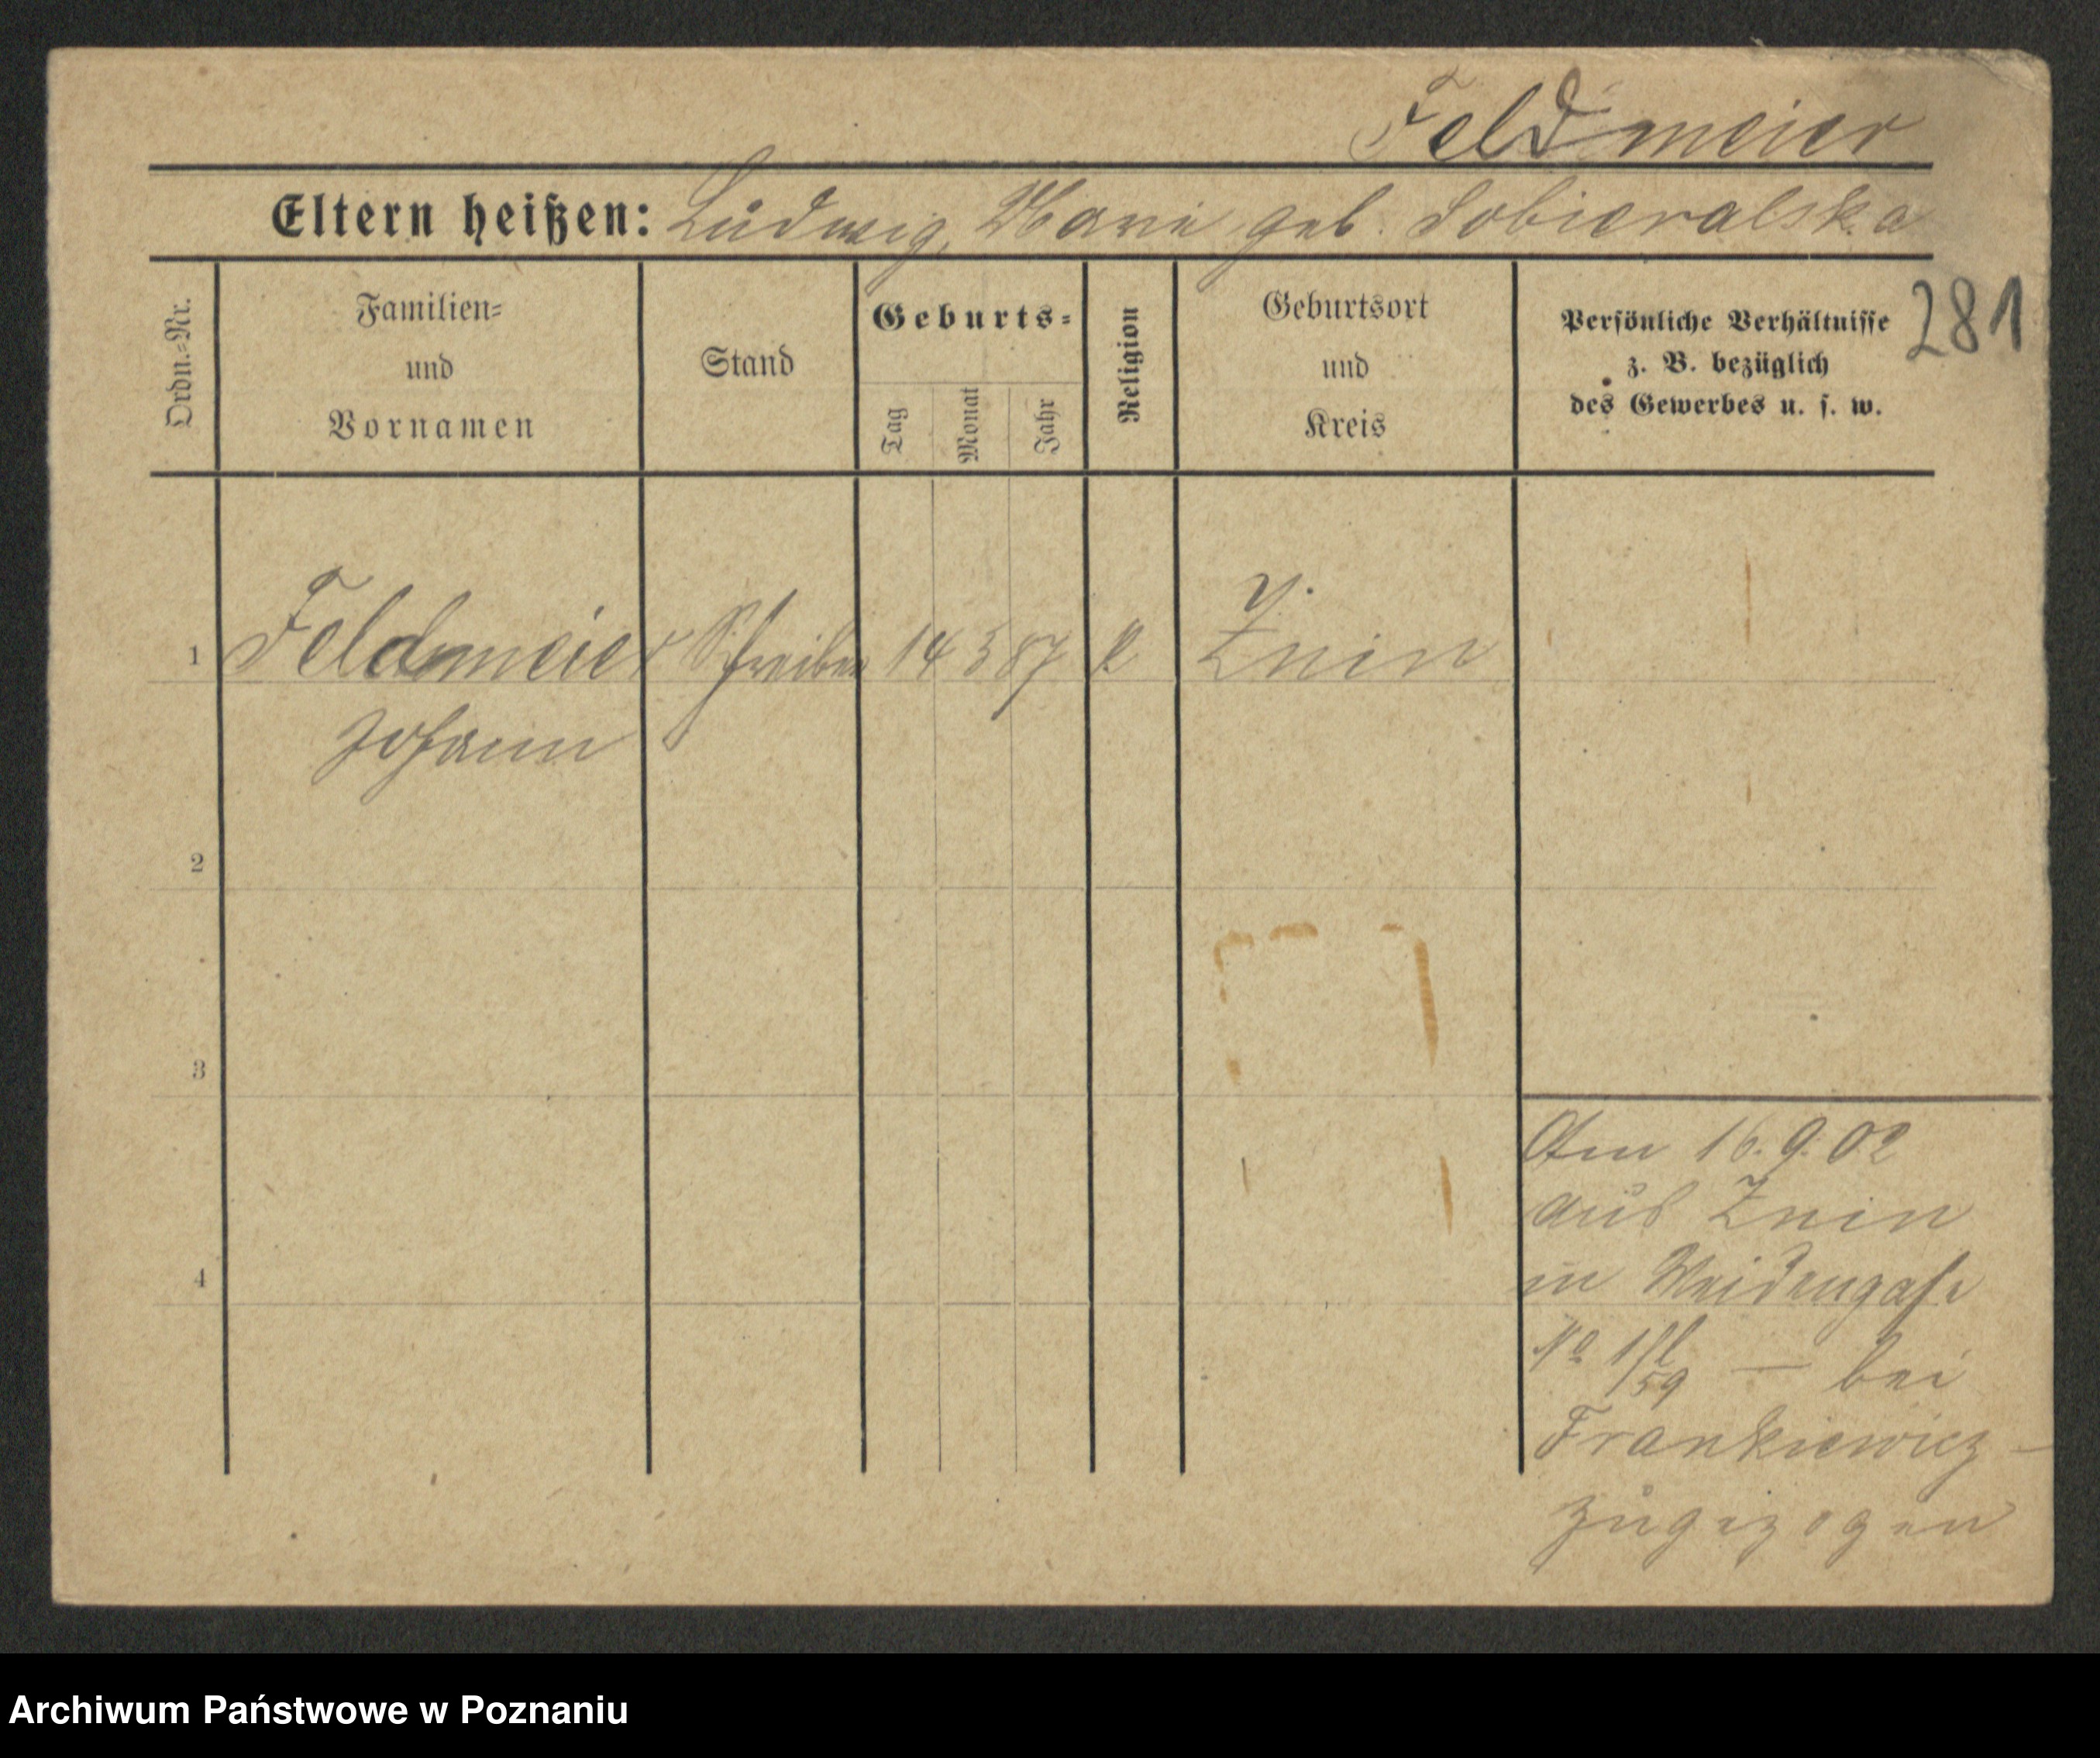 Feldmeier
Eltern heißen: Ludwig, Marie geb. Sobieralska
281
Ordn.=Nr.
Familien=
und
Vornamen
Stand
Geburts=
Tag
Monat
Jahr
Religion
Geburtsort
und
Kreis
Persönliche Verhältnisse
z. B. bezüglich
des Gewerbes u. s. w.
1 Feldmeier Schreiber 14 3 87 k Znin
Johann
2
3
4
Am 16.9.02
aus Znin
in Weidengasse
No — bei
Frankiewicz —
zugezogen
Archiwum Państwowe w Poznaniu